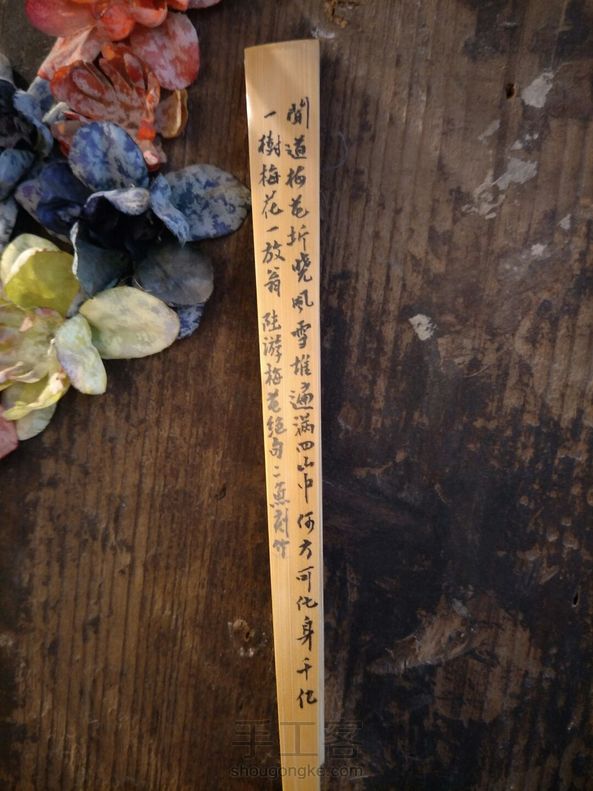 聞道梅花坼晓風雪堆遍满四山中何方可化身千亿
一樹梅花一放翁 陸游梅花绝句 二魚刻竹
手工客
shougongke.com